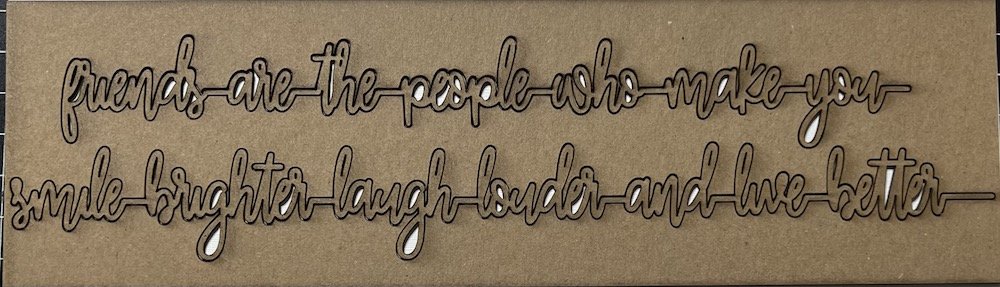 friends are the people who make you
smile brighter laugh louder and live better